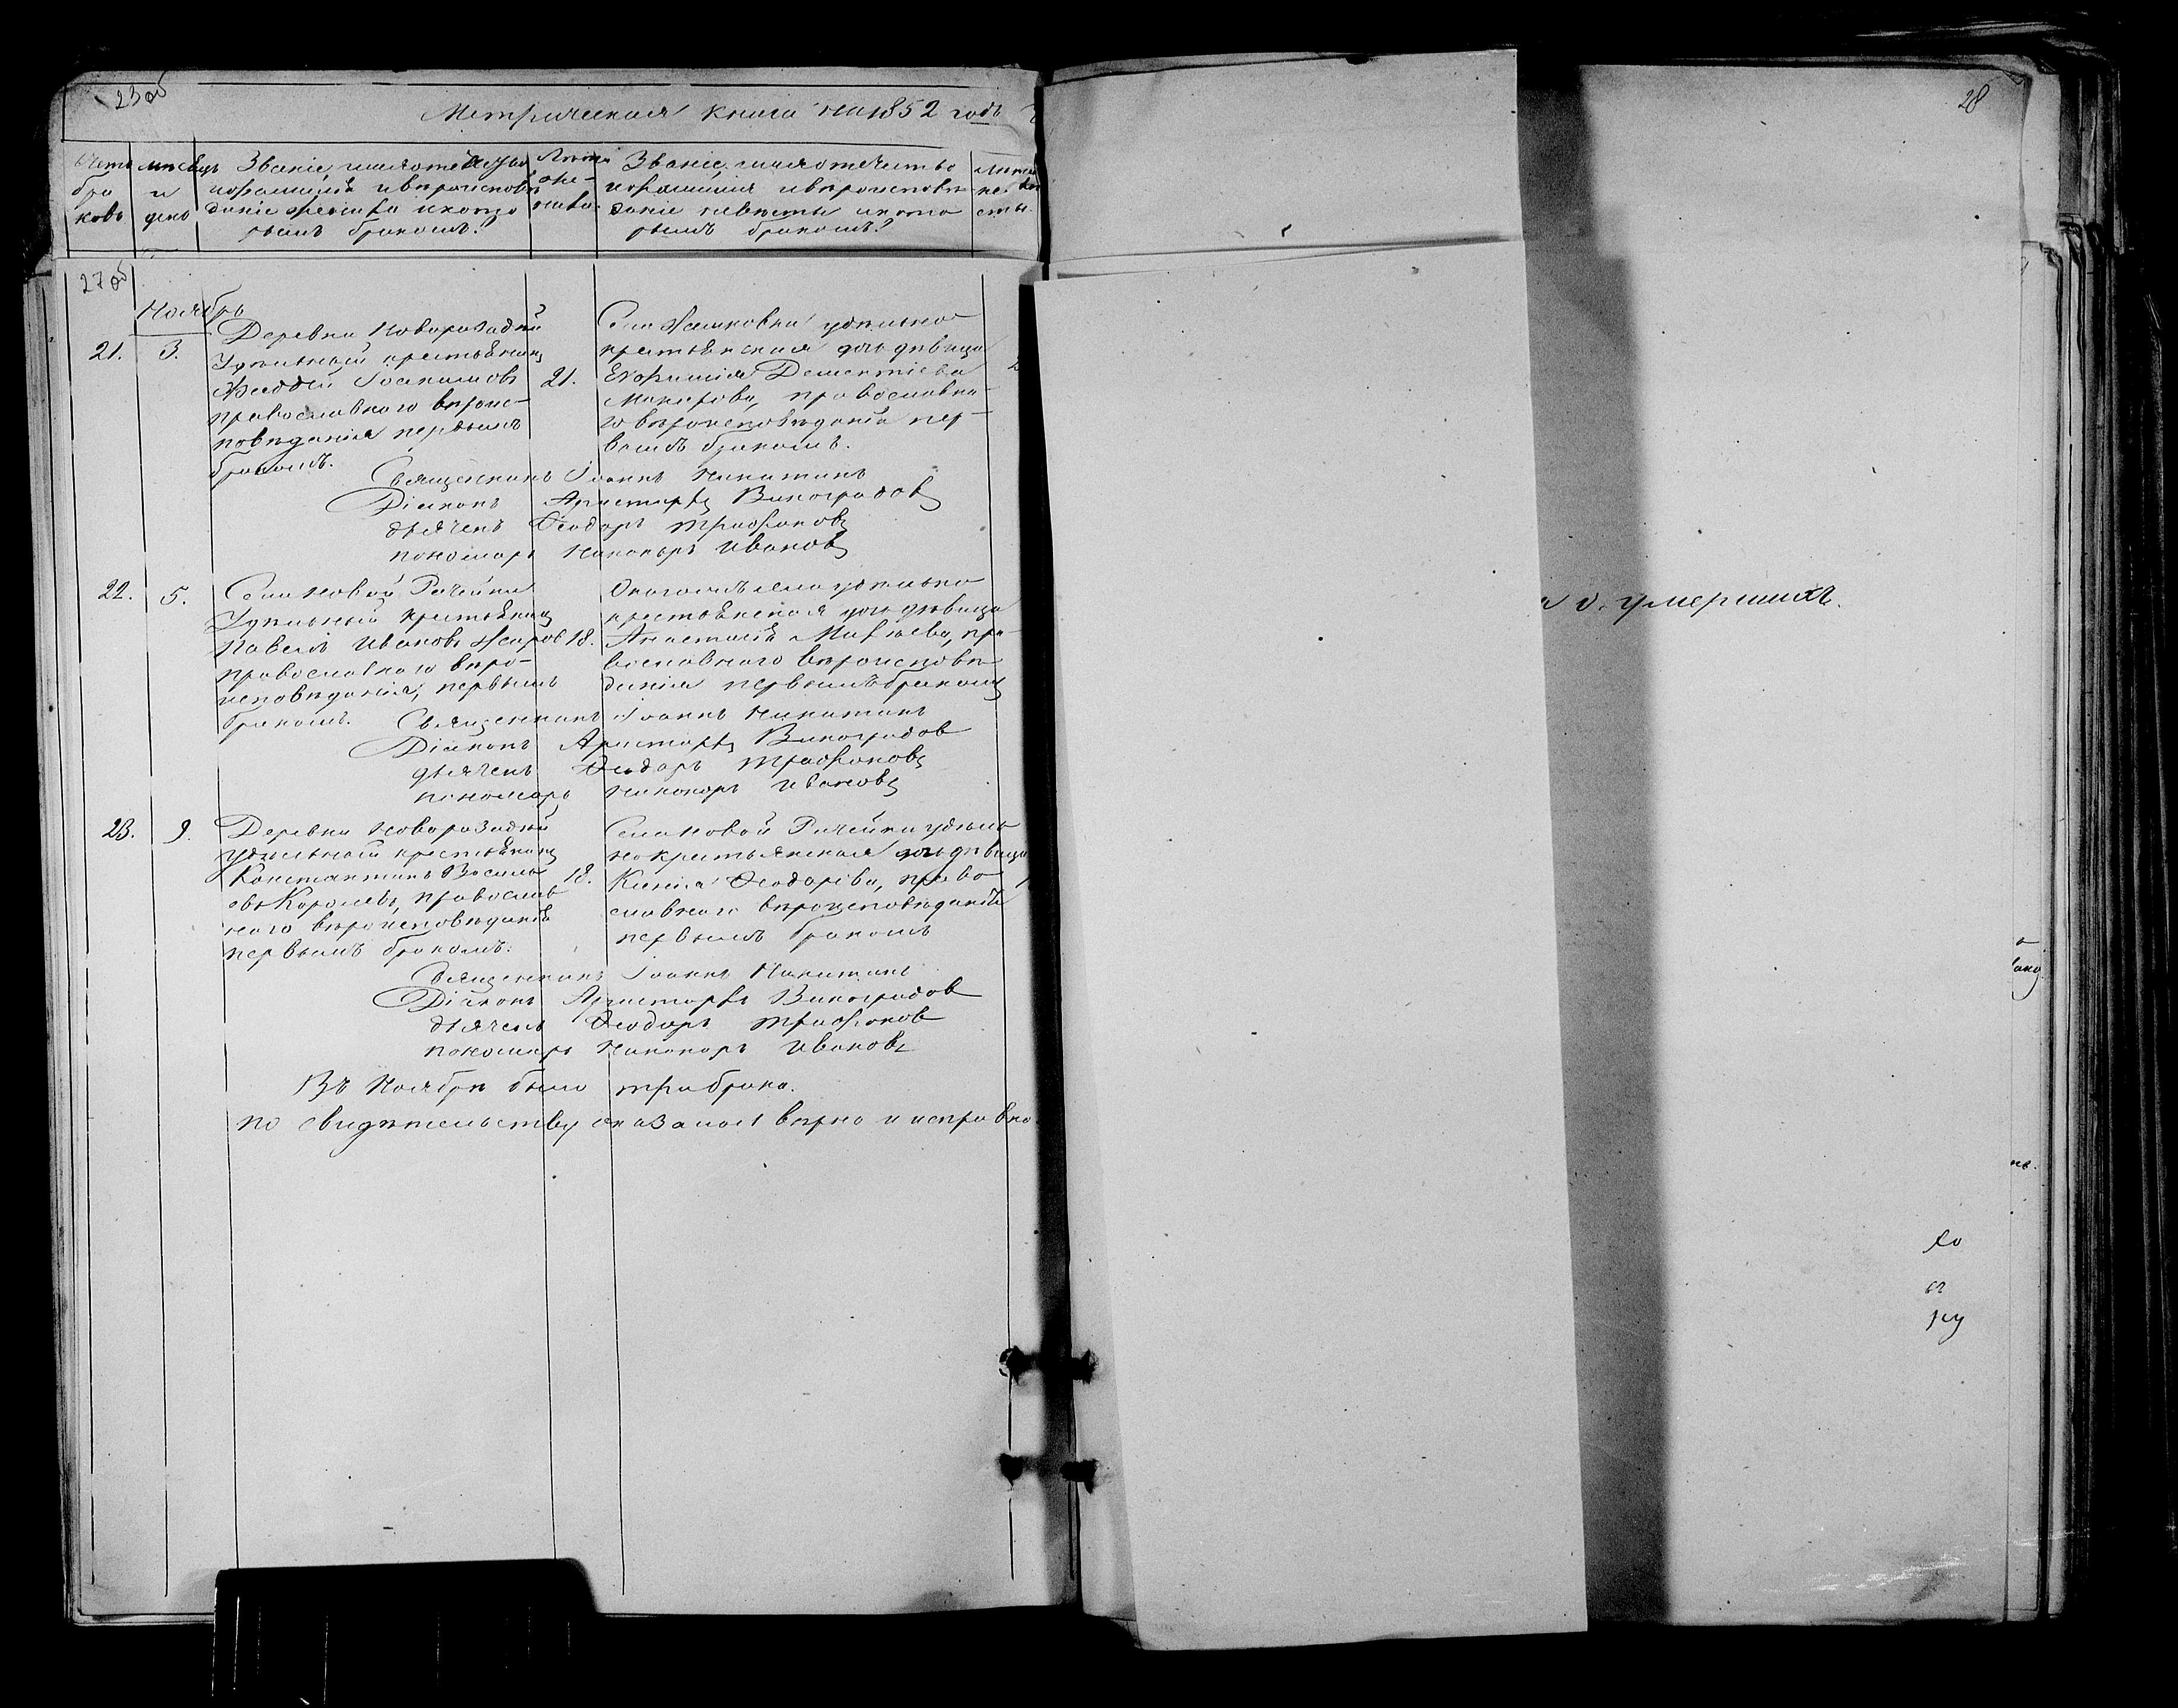 23об
Метрическая книга на 1852 годъ
Счетъ браковъ
мѣсяцъ и день
Званіе, имя, отечество
и фамилія и вѣроисповѣ
даніе жениха и кото
рымъ бракомъ.
Лѣта жениха.
Званіе, имя, отечество
и фамилія и вѣроисповѣ
даніе невѣсты и кото
рымъ бракомъ.
Лѣта невѣсты.
27об
Ноябрь
21. 3.
Деревни Новоразадной
Удѣльный крестьянинъ
Фаддей Іоакимовъ 21.
православнаго вѣроис-
повѣданія первымъ
бракомъ.
Села удѣльно
крестьянская дочь дѣвица
Екфимія Дементіева
Макарова, православна-
го вѣроисповѣданія пер-
вымъ бракомъ.
Священникъ Іоаннъ Никитинъ
Діаконъ Аристархъ Виноградовъ
дьячекъ Ѳеодоръ Трифоновъ
пономарь Никаноръ Ивановъ
22. 5.
Села Новой Рачейки
Удѣльный крестьянинъ
Павелъ Ивановъ Жаровъ 18.
православнаго вѣро-
исповѣданія, первымъ
бракомъ.
Онагожъ села удѣльно
крестьянская дочь дѣвица
Анастасія Матѳеева, пра-
вославнаго вѣроисповѣ
данія первымъ бракомъ
Священникъ Іоаннъ Никитинъ
Діаконъ Аристархъ Виноградовъ
дьячекъ Ѳеодоръ Трифоновъ
пономарь Никаноръ Ивановъ
23. 9.
Деревни Новоразадной
удѣльный крестьянинъ
Константинъ Василь 18.
евъ Королевъ, православ
наго вѣроисповѣданія
первымъ бракомъ.
Села Новой Рачейки удѣль
нокрестьянская дочь дѣвица
Ксенія Ѳеодорова, право
славнаго вѣроисповѣданія
первымъ бракомъ
Священникъ Іоаннъ Никитинъ
Діаконъ Аристархъ Виноградовъ
дьячекъ Ѳеодоръ Трифоновъ
пономарь Никаноръ Ивановъ
Въ Ноябрѣ было три брака.
по свидѣтельству оказалось вѣрно и исправно.
28
о умершихъ.